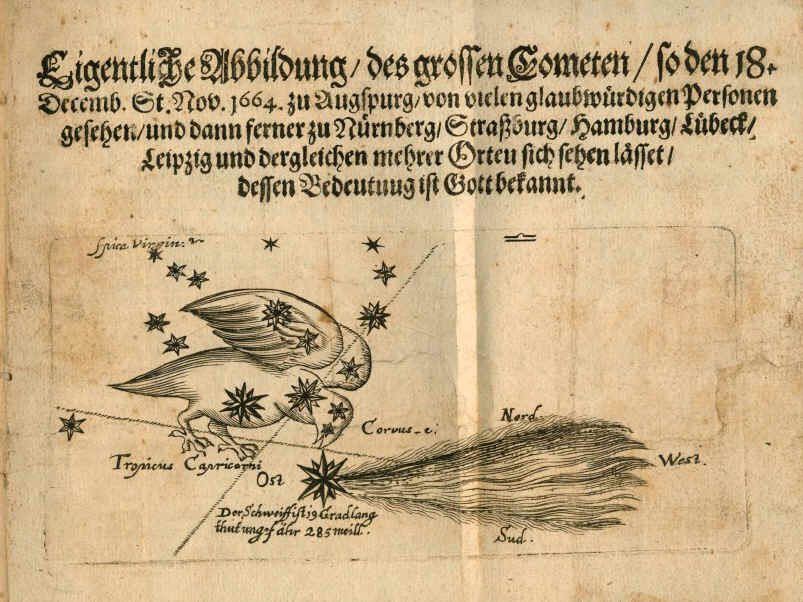 Eigentliche Abbildung/ des grossen Cometen/ so den 18.
Decemb. St. Nov. 1664. zu Augspurg/ von vielen glaubwürdigen Personen
gesehen/ und dann ferner zu Nürnberg/ Straßburg/ Hamburg/ Lübeck/
Leipzig und dergleichen mehrer Orten sich sehen lässet/
dessen Bedeutung ist Gott bekannt.
Spica Virgin.
♎
Corvus
Nord.
Tropicus Capricorni
West.
Ost
Der Schweiff ist 19 Grad lang
thut ungfähr 285 meill.
Sud.